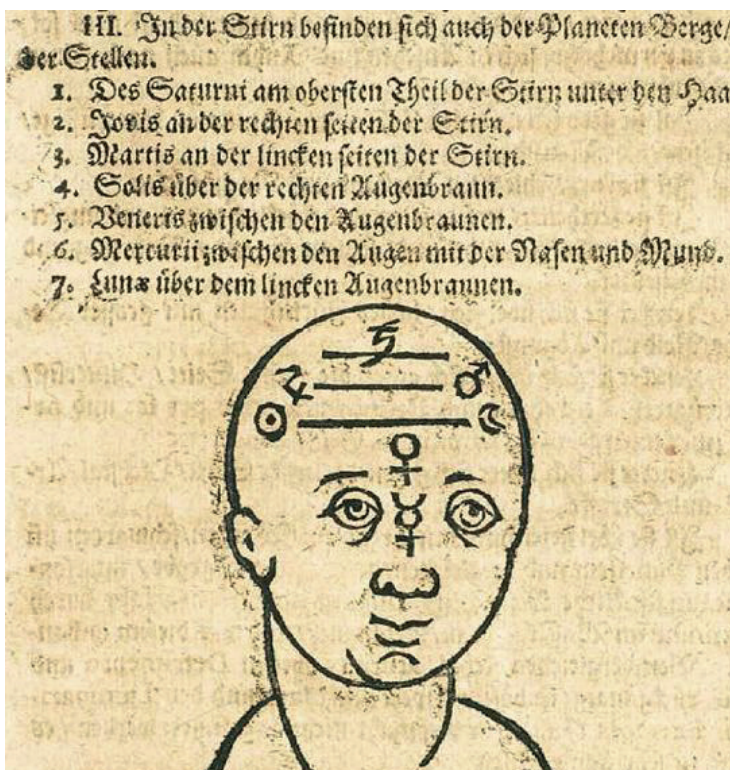 III. In der Stirn befinden sich auch der Planeten Berge/
der Stellen.
1. Des Saturni am obersten Theil der Stirn unter den Haa
2. Jovis an der rechten seiten der Stirn.
3. Martis an der lincken seiten der Stirn.
4. Solis über der rechten Augenbraun.
5. Veneris zwischen den Augenbraunen.
6. Mercurii zwischen den Augen mit der Nasen und Mund.
7. Lunæ über dem lincken Augenbraunen.
♄
♃ ♂
☉ ☾
♀
☿